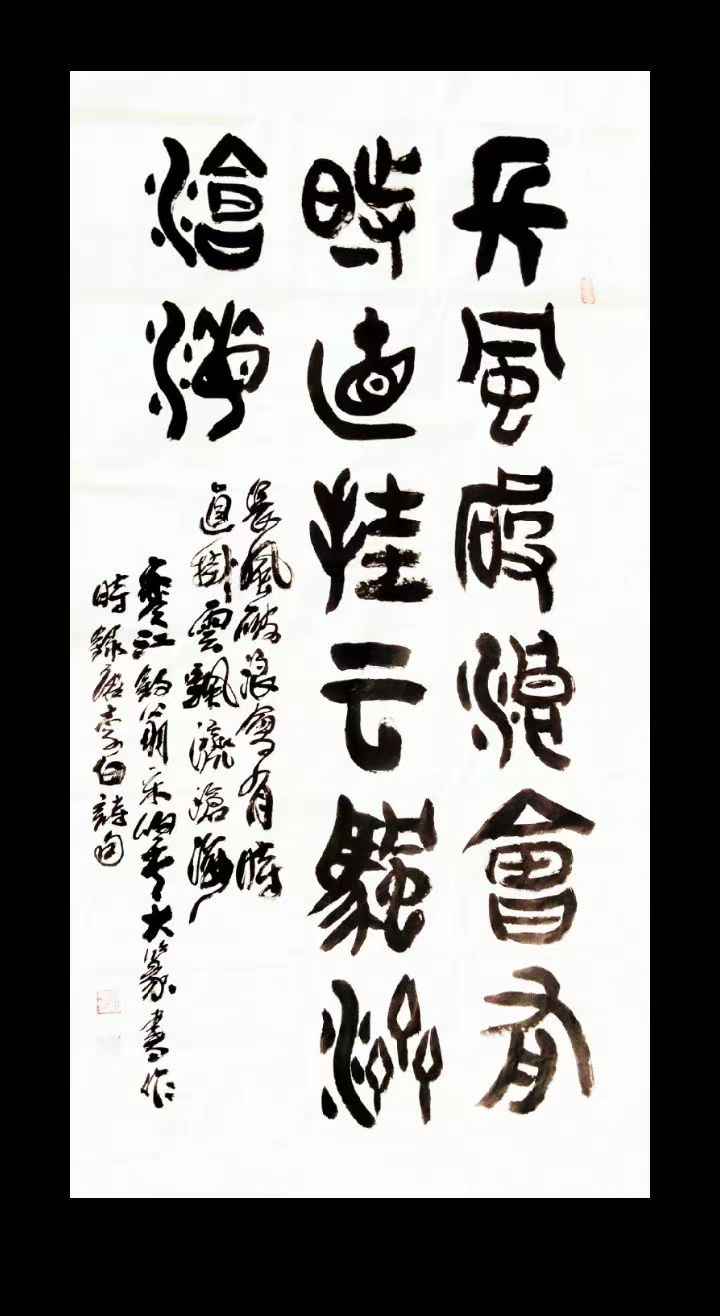 長風破浪會有
時直挂云颿濟
滄海
長風破浪會有時
直掛雲颿濟滄海
寒江釣翁大篆書作
時錄唐李白詩句